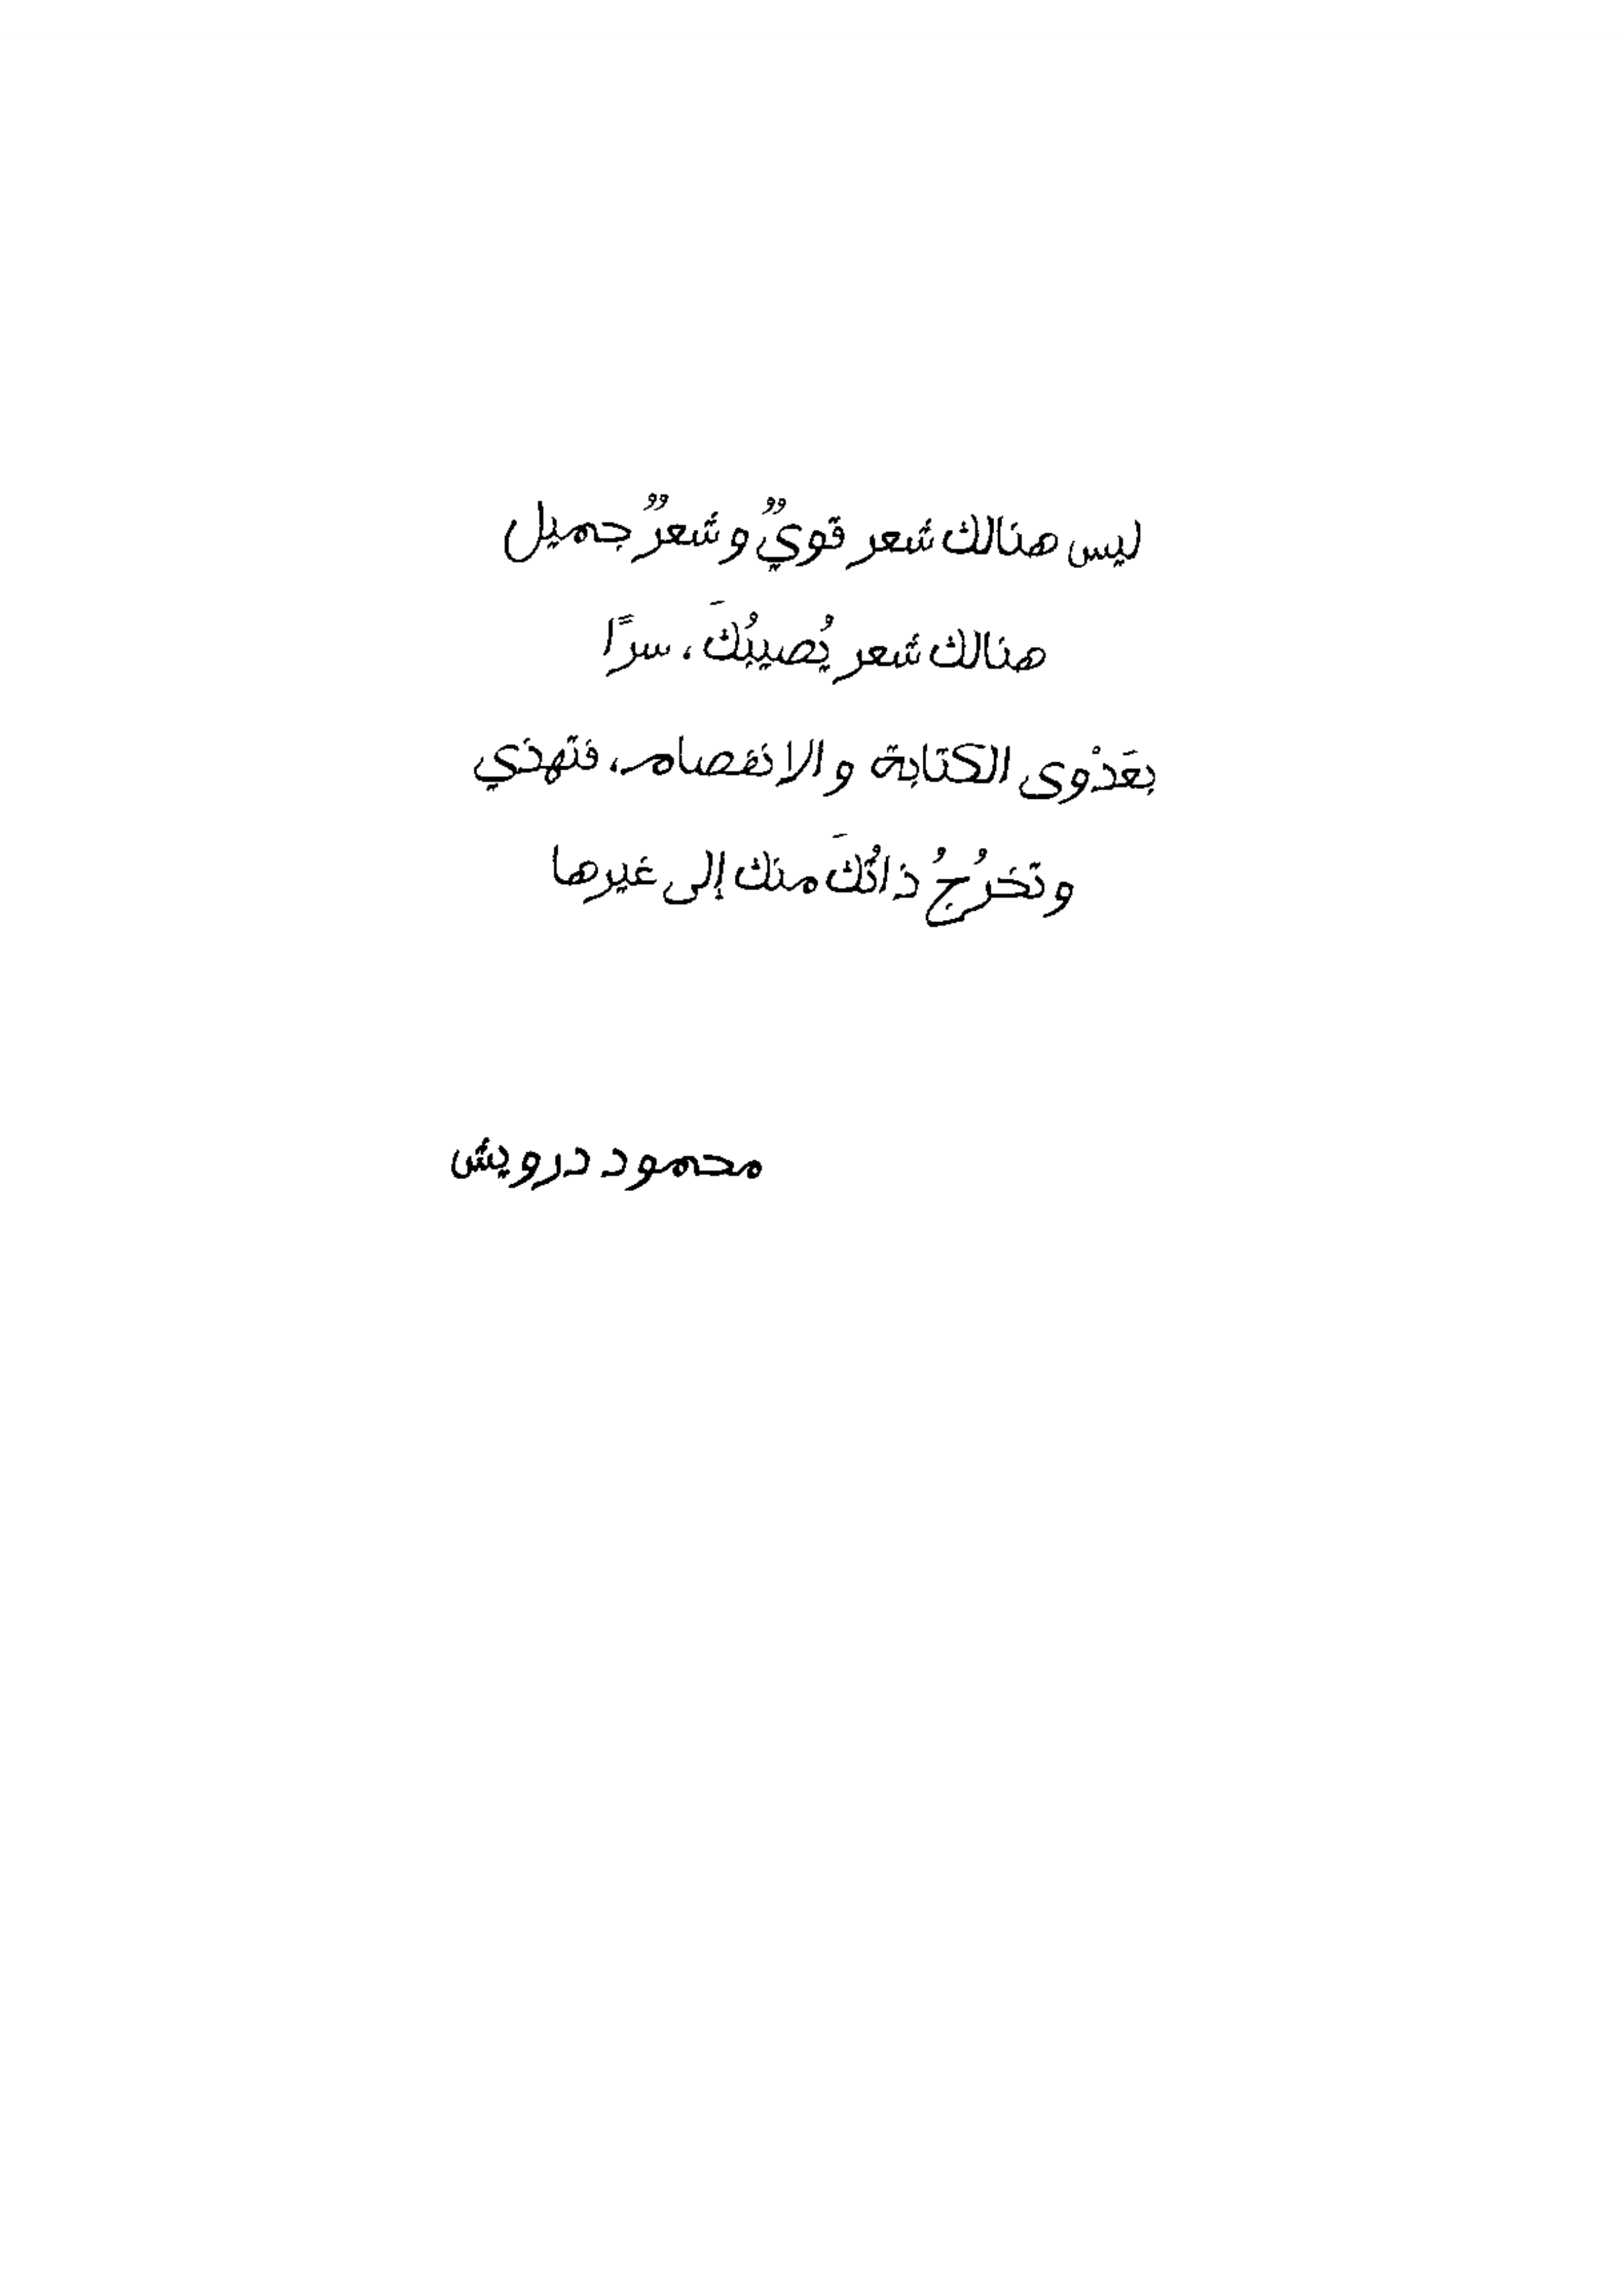 ليس هنالك شعر قويٌ وشعرٌ جميل
هنالك شعر يُصيبُكَ، سرًا
بعَدْوى الكتابة والانفصام، فتهذي
وتخرُجُ ذاتُكَ منك إلى غيرها
محمود درويش